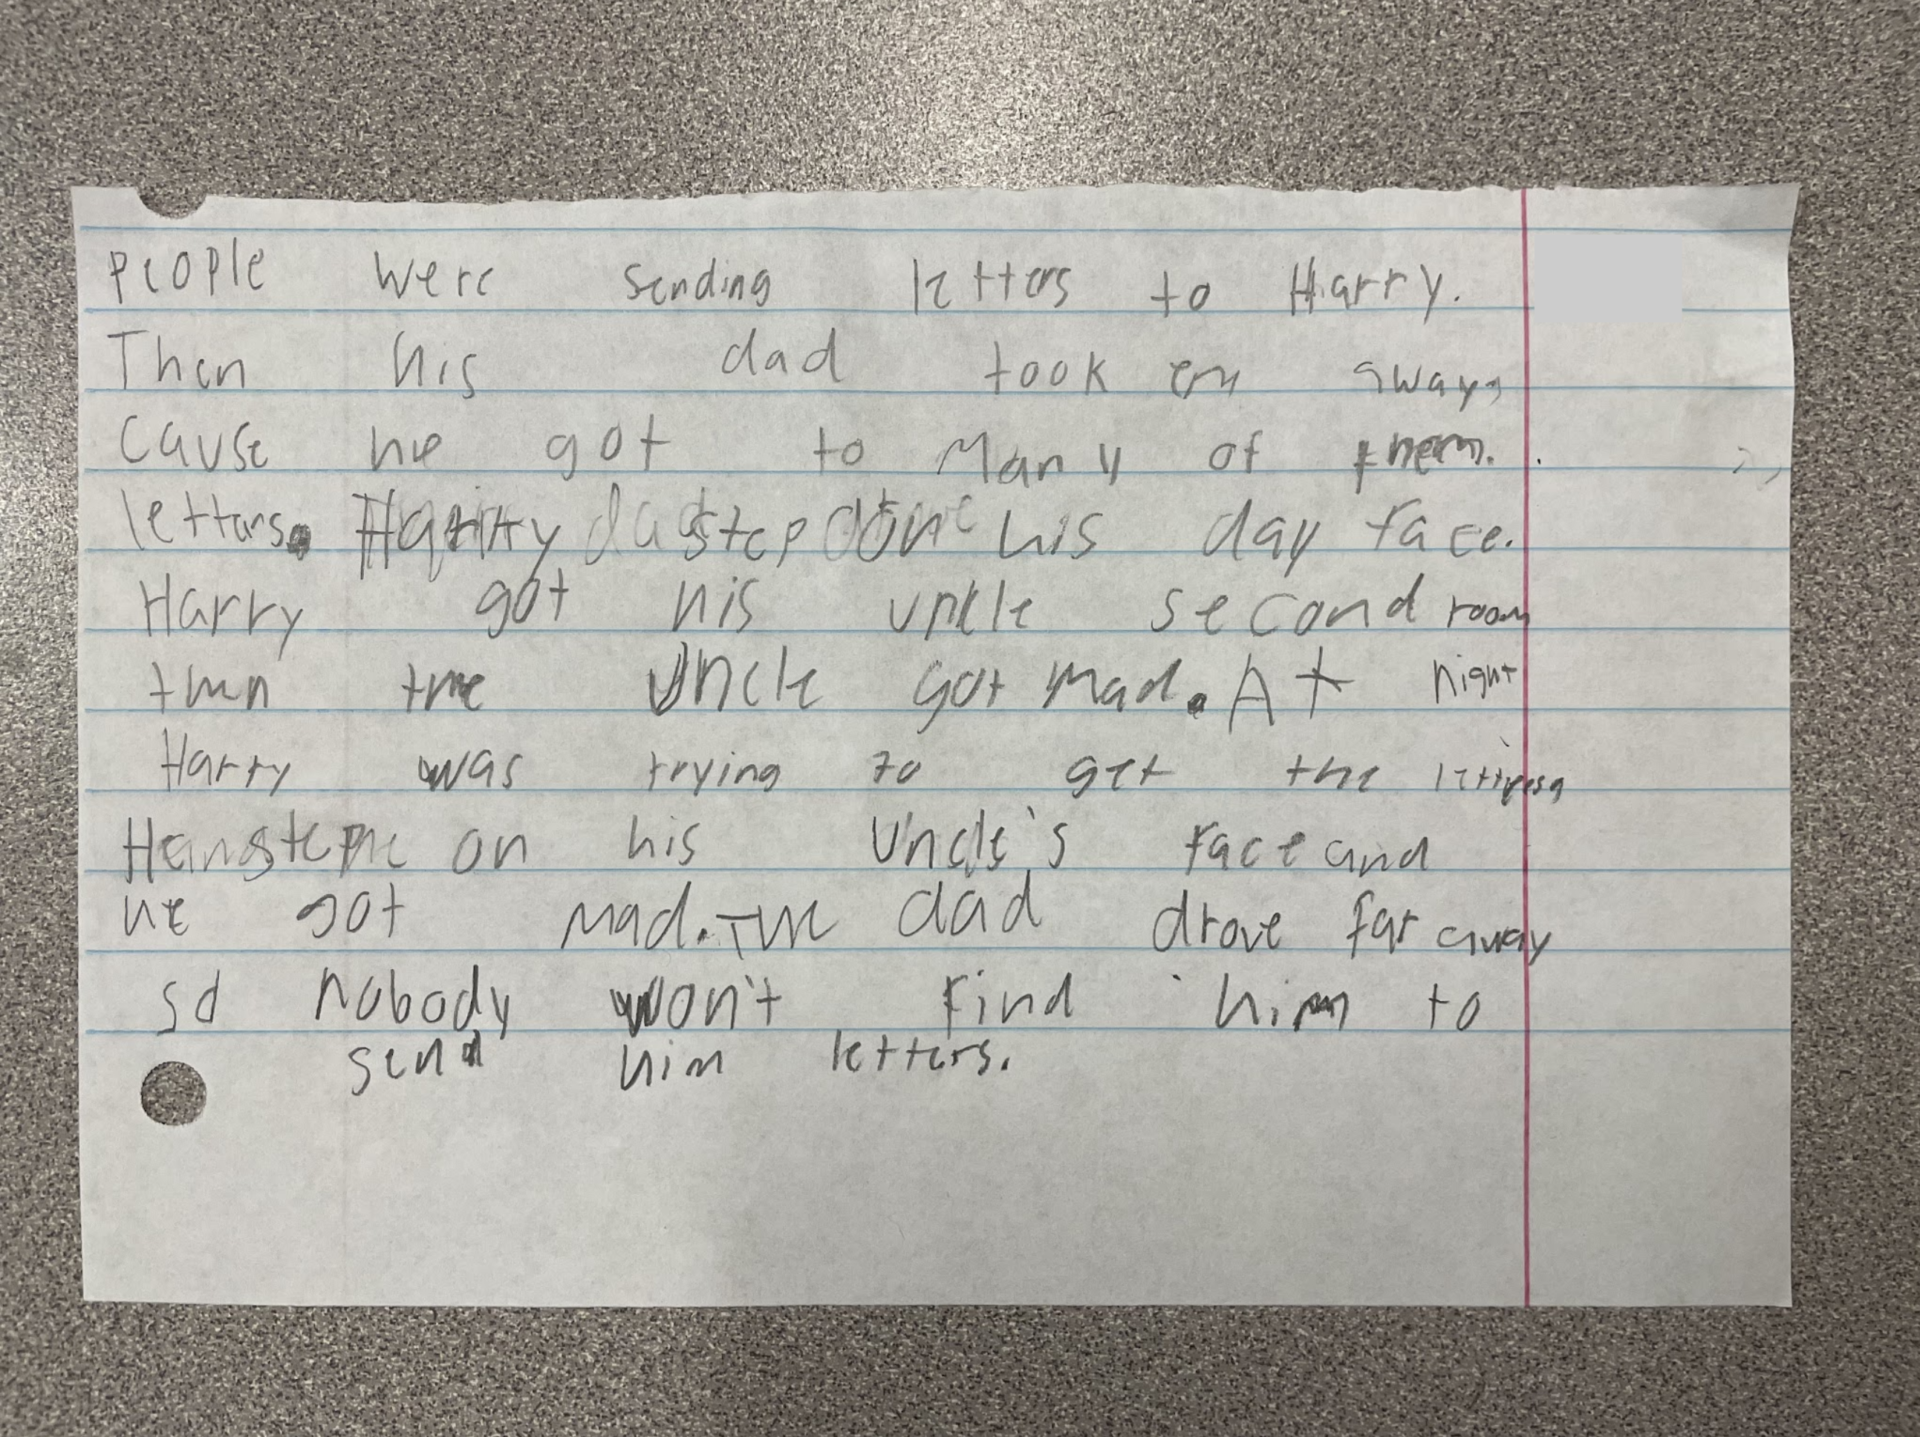 People were sending letters to Harry.
Then his dad took em away,
Cause he got to Many of them.
letters. Harry step on his day face.
Harry got his unkle second room
then the Uncle got mad. At night
Harry was trying to get the
on his Uncle's face and
he got mad. The dad drove far away
so nobody won't find him to
send him letters.